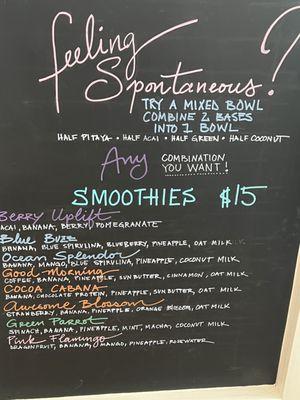 feeling
Spontaneous?
TRY A MIXED BOWL
COMBINE 2 BASES
INTO 1 BOWL
HALF PITAYA • HALF ACAI • HALF GREEN • HALF COCONUT
Any COMBINATION
YOU WANT!
SMOOTHIES $15
Berry Uplift
ACAI, BANANA, BERRY, POMEGRANATE
Blue Buzz
BANANA, BLUE SPIRULINA, BLUEBERRY, PINEAPPLE, OAT MILK
Ocean Splendor
BANANA, MANGO, BLUE SPIRULINA, PINEAPPLE, COCONUT MILK
Good Morning
COFFEE, BANANA, PINEAPPLE, SUN BUTTER, CINNAMON, OAT MILK
COCOA CABANA
BANANA, CHOCOLATE PROTEIN, PINEAPPLE, SUN BUTTER, OAT MILK
Awesome Blossom
STRAWBERRY, BANANA, PINEAPPLE, ORANGE BLOSSOM, OAT MILK
Green Parrot
SPINACH, BANANA, PINEAPPLE, MINT, MACHA, COCONUT MILK
Pink Flamingo
DRAGONFRUIT, BANANA, MANGO, PINEAPPLE, ROSEWATER